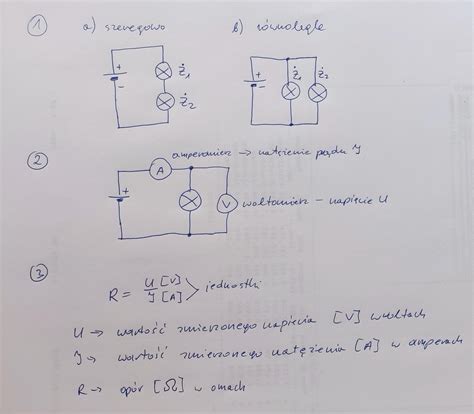 1 a) szeregowo b) równolegle
+
-
Ż1
Ż2
+
-
Ż1
Ż2
2 amperomierz → natężenie prądu I
A
+
-
V woltomierz – napięcie U
3
R = U [V] / I [A] > jednostki
U → wartość zmierzonego napięcia [V] w woltach
I → wartość zmierzonego natężenia [A] w amperach
R → opór [Ω] w omach